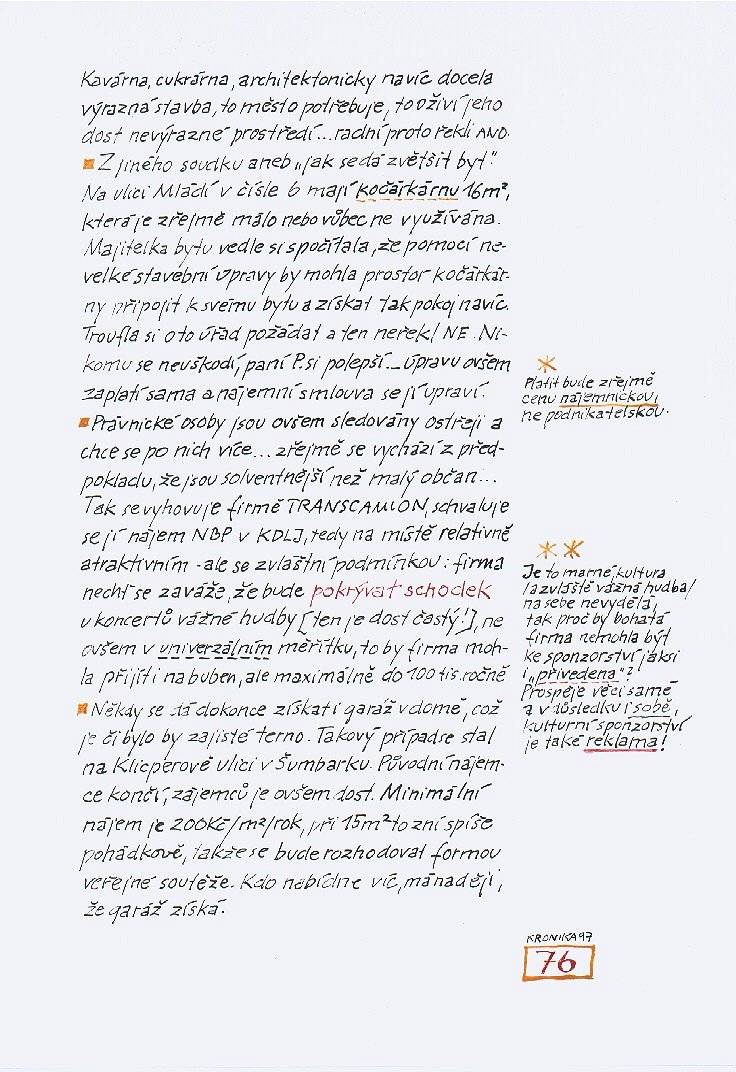 Kavárna, cukrárna, architektonicky navíc docela
výrazná stavba, to město potřebuje, to oživí jeho
dost nevýrazné prostředí... radní proto řekli ANO.
Z jiného soudku aneb „jak se dá zvětšit byt".
Na ulici Mládí v čísle 6 mají kočárkárnu 16m²,
která je zřejmě málo nebo vůbec ne využívána.
Majitelka bytu vedle si spočítala, že pomocí ne-
velké stavební úpravy by mohla prostor kočárkár-
ny připojit k svému bytu a získat tak pokoj navíc.
Troufla si o to úřad požádat a ten neřekl NE. Ni-
komu se neuškodí, paní P. si polepší... úpravu ovšem
zaplatí sama a nájemní smlouva se jí upraví.
Právnické osoby jsou ovšem sledovány ostřeji a
chce se po nich více... zřejmě se vychází z před-
pokladu, že jsou solventnější než malý občan...
Tak se vyhovuje firmě TRANSCAMION, schvaluje
se jí nájem NBP v KDLJ, tedy na místě relativně
atraktivním - ale se zvláštní podmínkou: firma
nechť se zaváže, že bude pokrývat schodek
u koncertů vážné hudby [ten je dost častý!], ne
ovšem v univerzálním měřítku, to by firma moh-
la přijíti na buben, ale maximálně do 100 tis. ročně
Někdy se dá dokonce získati garáž v domě, což
je či bylo by zajisté terno. Takový případ se stal
na Klicperově ulici v Šumbarku. Původní nájem-
ce končí, zájemců je ovšem dost. Minimální
nájem je 200Kč/m²/rok, při 15m² to zní spíše
pohádkově, takže se bude rozhodovat formou
veřejné soutěže. Kdo nabídne víc, má naději,
že garáž získá.
Platit bude zřejmě
cenu nájemnickou,
ne podnikatelskou.
Je to marné, kultura
/a zvláště vážná hudba/
na sebe nevydělá,
tak proč by bohatá
firma nemohla být
ke sponzorství jaksi
i „přivedena"?
Prospěje věci samé
a v důsledku i sobě,
kulturní sponzorství
je také reklama!
KRONIKA 97
76